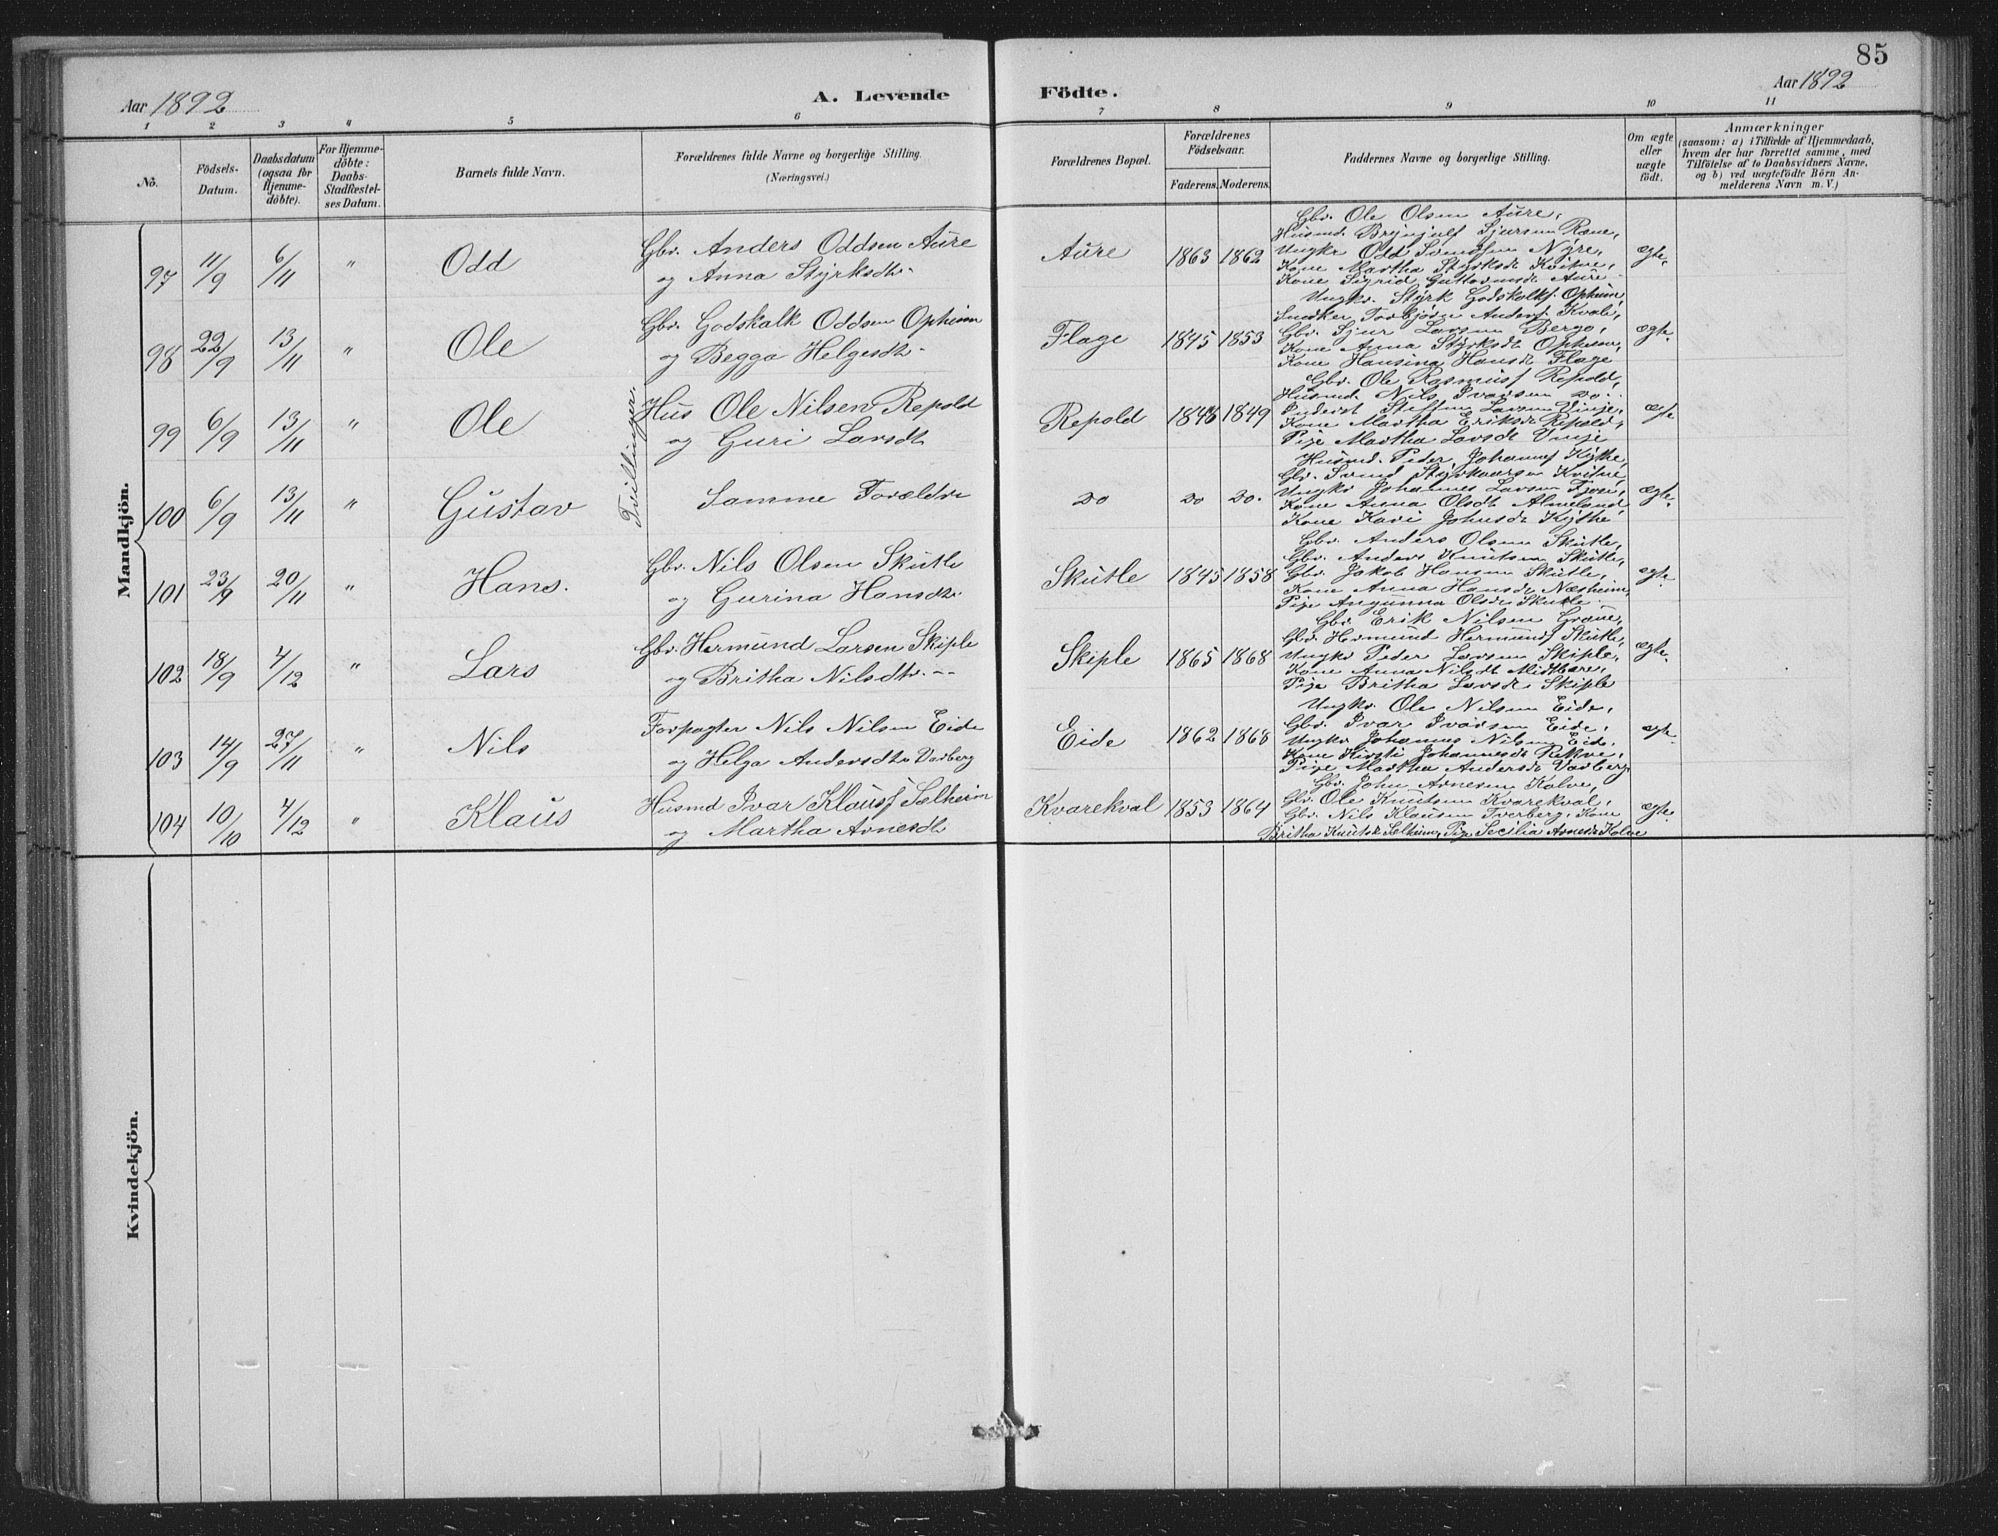 85
Aar 1892
A. Levende
Födte.
Aar 1892
1 2 3 4 5 6 7 8 9 10 11
No.
Födsels-
Datum.
Daabsdatum
(ogsaa for
Hjemme-
döbte).
For Hjemme-
döbte:
Daabs-
Stadfæstel-
ses Datum.
Barnets fulde Navn.
Forældrenes fulde Navne og borgerlige Stilling.
(Næringsvei.)
Forældrenes Bopæl.
Forældrenes
Födselsaar.
Faderens. Moderens.
Faddernes Navne og borgerlige Stilling.
Om ægte
eller
uægte
födt.
Anmærkninger
(saasom: a) i Tilfælde af Hjemmedaab,
hvem der har forrettet samme, med
Tilföielse af to Daabsvidners Navne,
og b) ved uægtefödte Börn An-
melderens Navn m. V.)
Mandkjön.
97 11/9 6/11 " Odd
Gbr. Anders Oddsen Aure
og Anna Styrksdtr.
Aure 1863 1862
Gbr. Ole Olsen Aure,
Husmd. Brynjulf Sjursen Røne,
Ungkr Odd Svendsen Nyre,
Kone Martha Styrksdt Kvitne,
Kone Sigrid Guttormsdt Aure
ægte.
98 22/9 13/11 " Ole
Gbr. Godskalk Oddsen Opheim
og Begga Helgesdtr.
Flage 1845 1853
Ungkr. Styrk Godskalks. Opheim,
Snedker Torbjörn Anders. Kvale,
Gbr. Sjur Larsen Bergo,
Kone Anna Styrksdt Opheim,
Kone Hansina Hansdt Flage
ægte.
99 6/9 13/11 " Ole
Tvillinger.
Hus Ole Nilsen Repold
og Guri Larsdt
Repold 1849
Gbr. Ole Rasmusf Repold,
Husmd. Nils Ivarsen do.
Inderst Steffen Larsen Vinje,
Kone Martha Eriksdt Repold,
Pige Martha Larsdt Vinje
ægte
100 6/9 13/11 " Gustav
Samme Forældre
do do do.
Husmd. Peder Johannes Kythe,
Gbr. Svend Styrkaarsen Kvitne,
Ungkr Johannes Larsen
Kone Anna Olsdt Almeland,
Kone Kari Johnsdt Kythe
ægte.
101 23/9 20/11 " Hans.
Gbr. Nils Olsen Skutle
og Gurina Hansdtr.
Skutle 1845 1858
Gbr. Anders Olsen Skutle,
Gbr. Anders Knutsen Skutle,
Gbr. Jakob Hansen Skutle,
Kone Anna Hansdt Næsheim,
Pige Angunna Olsdt Skutle
ægte.
102 18/9 4/12 " Lars
Gbr. Hermund Larsen Skiple
og Britha Nilsdtr.
Skiple 1865 1868
Gbr. Erik Nilsen Grove,
Gbr. Hermund Hermunds Skutle,
Ungkr Peder Larsen Skiple,
Kone Anna Nilsdt
Pige Britha Larsdt Skiple
ægte.
103 14/9 27/11 " Nils
Forpagter Nils Nilsen Eide
og Helga Andersdtr Varberg
Eide 1862 1868
Ungkr Ole Nilsen Eide,
Gbr. Ivar Ivarsen Eide,
Ungkr Johannes Nilsen Eide,
Kone Kirsti Johannesdt Rekve,
Pige Martha Andersdt Varberg
ægte.
104 10/10 4/12 " Klaus
Husmd Ivar Klausf Sælheim
og Martha Arnesdt
Kvarekval 1853 1864
Gbr. John Arnesen Kolve,
Gbr. Ole Knutsen Kvarekval,
Gbr. Nils Klausen Tverberg, Kone
Britha Knutsdt Selheim, Pige Secilia Arnesdt Kolve
ægte.
Kvindekjön.